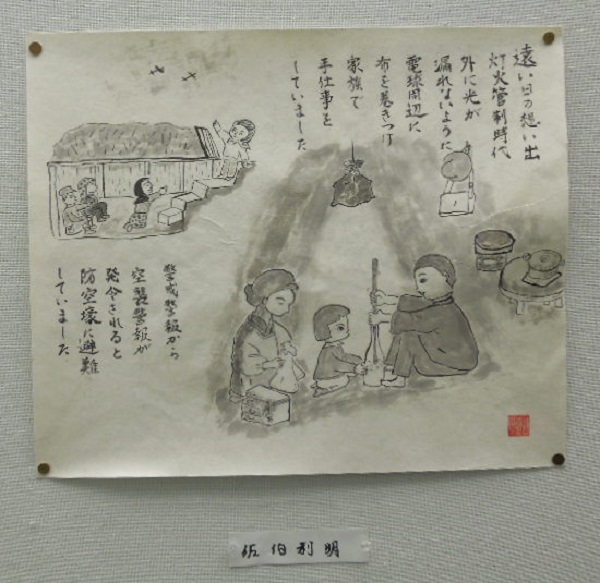 遠い日の想い出
灯火管制時代
外に光が
漏れないように
電球周辺に
布を巻きつけ
家族で
手仕事を
していました
警戒警報から
空襲警報が
発令されると
防空壕に避難
していました
佐伯利明